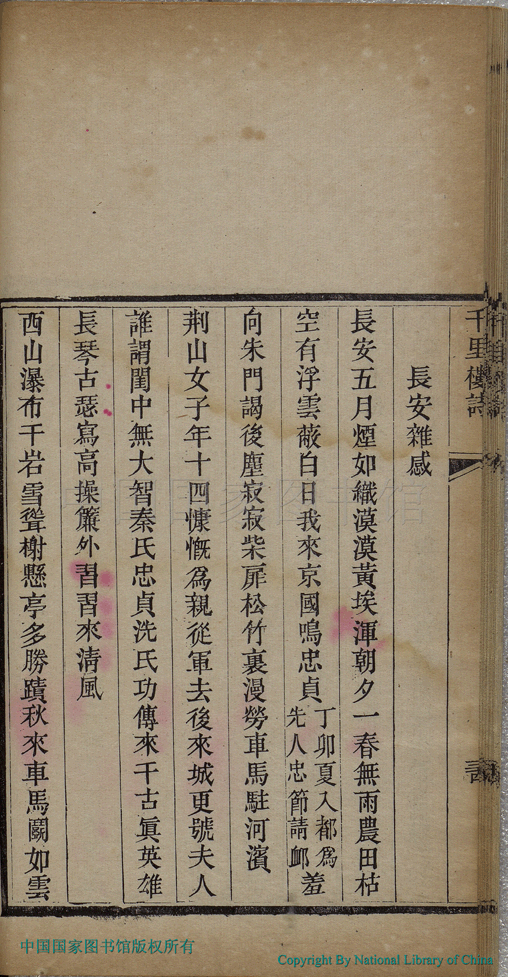 千里樓詩
長安雜感
長安五月煙如織漠漠黃埃渾朝夕一春無雨農田枯
空有浮雲蔽白日我來京國鳴忠貞丁卯夏入都爲先人忠節請卹羞
向朱門謁後塵寂寂柴扉松竹裏漫勞車馬駐河濱
荆山女子年十四慷慨爲親從軍去後來城更號夫人
誰謂閨中無大智秦氏忠貞洗氏功傳來千古眞英雄
長琴古瑟寫高操簾外習習來清風
西山瀑布千岩雪聳榭懸亭多勝蹟秋來車馬鬭如雲
中国国家图书馆版权所有
Copyright By National Library of China